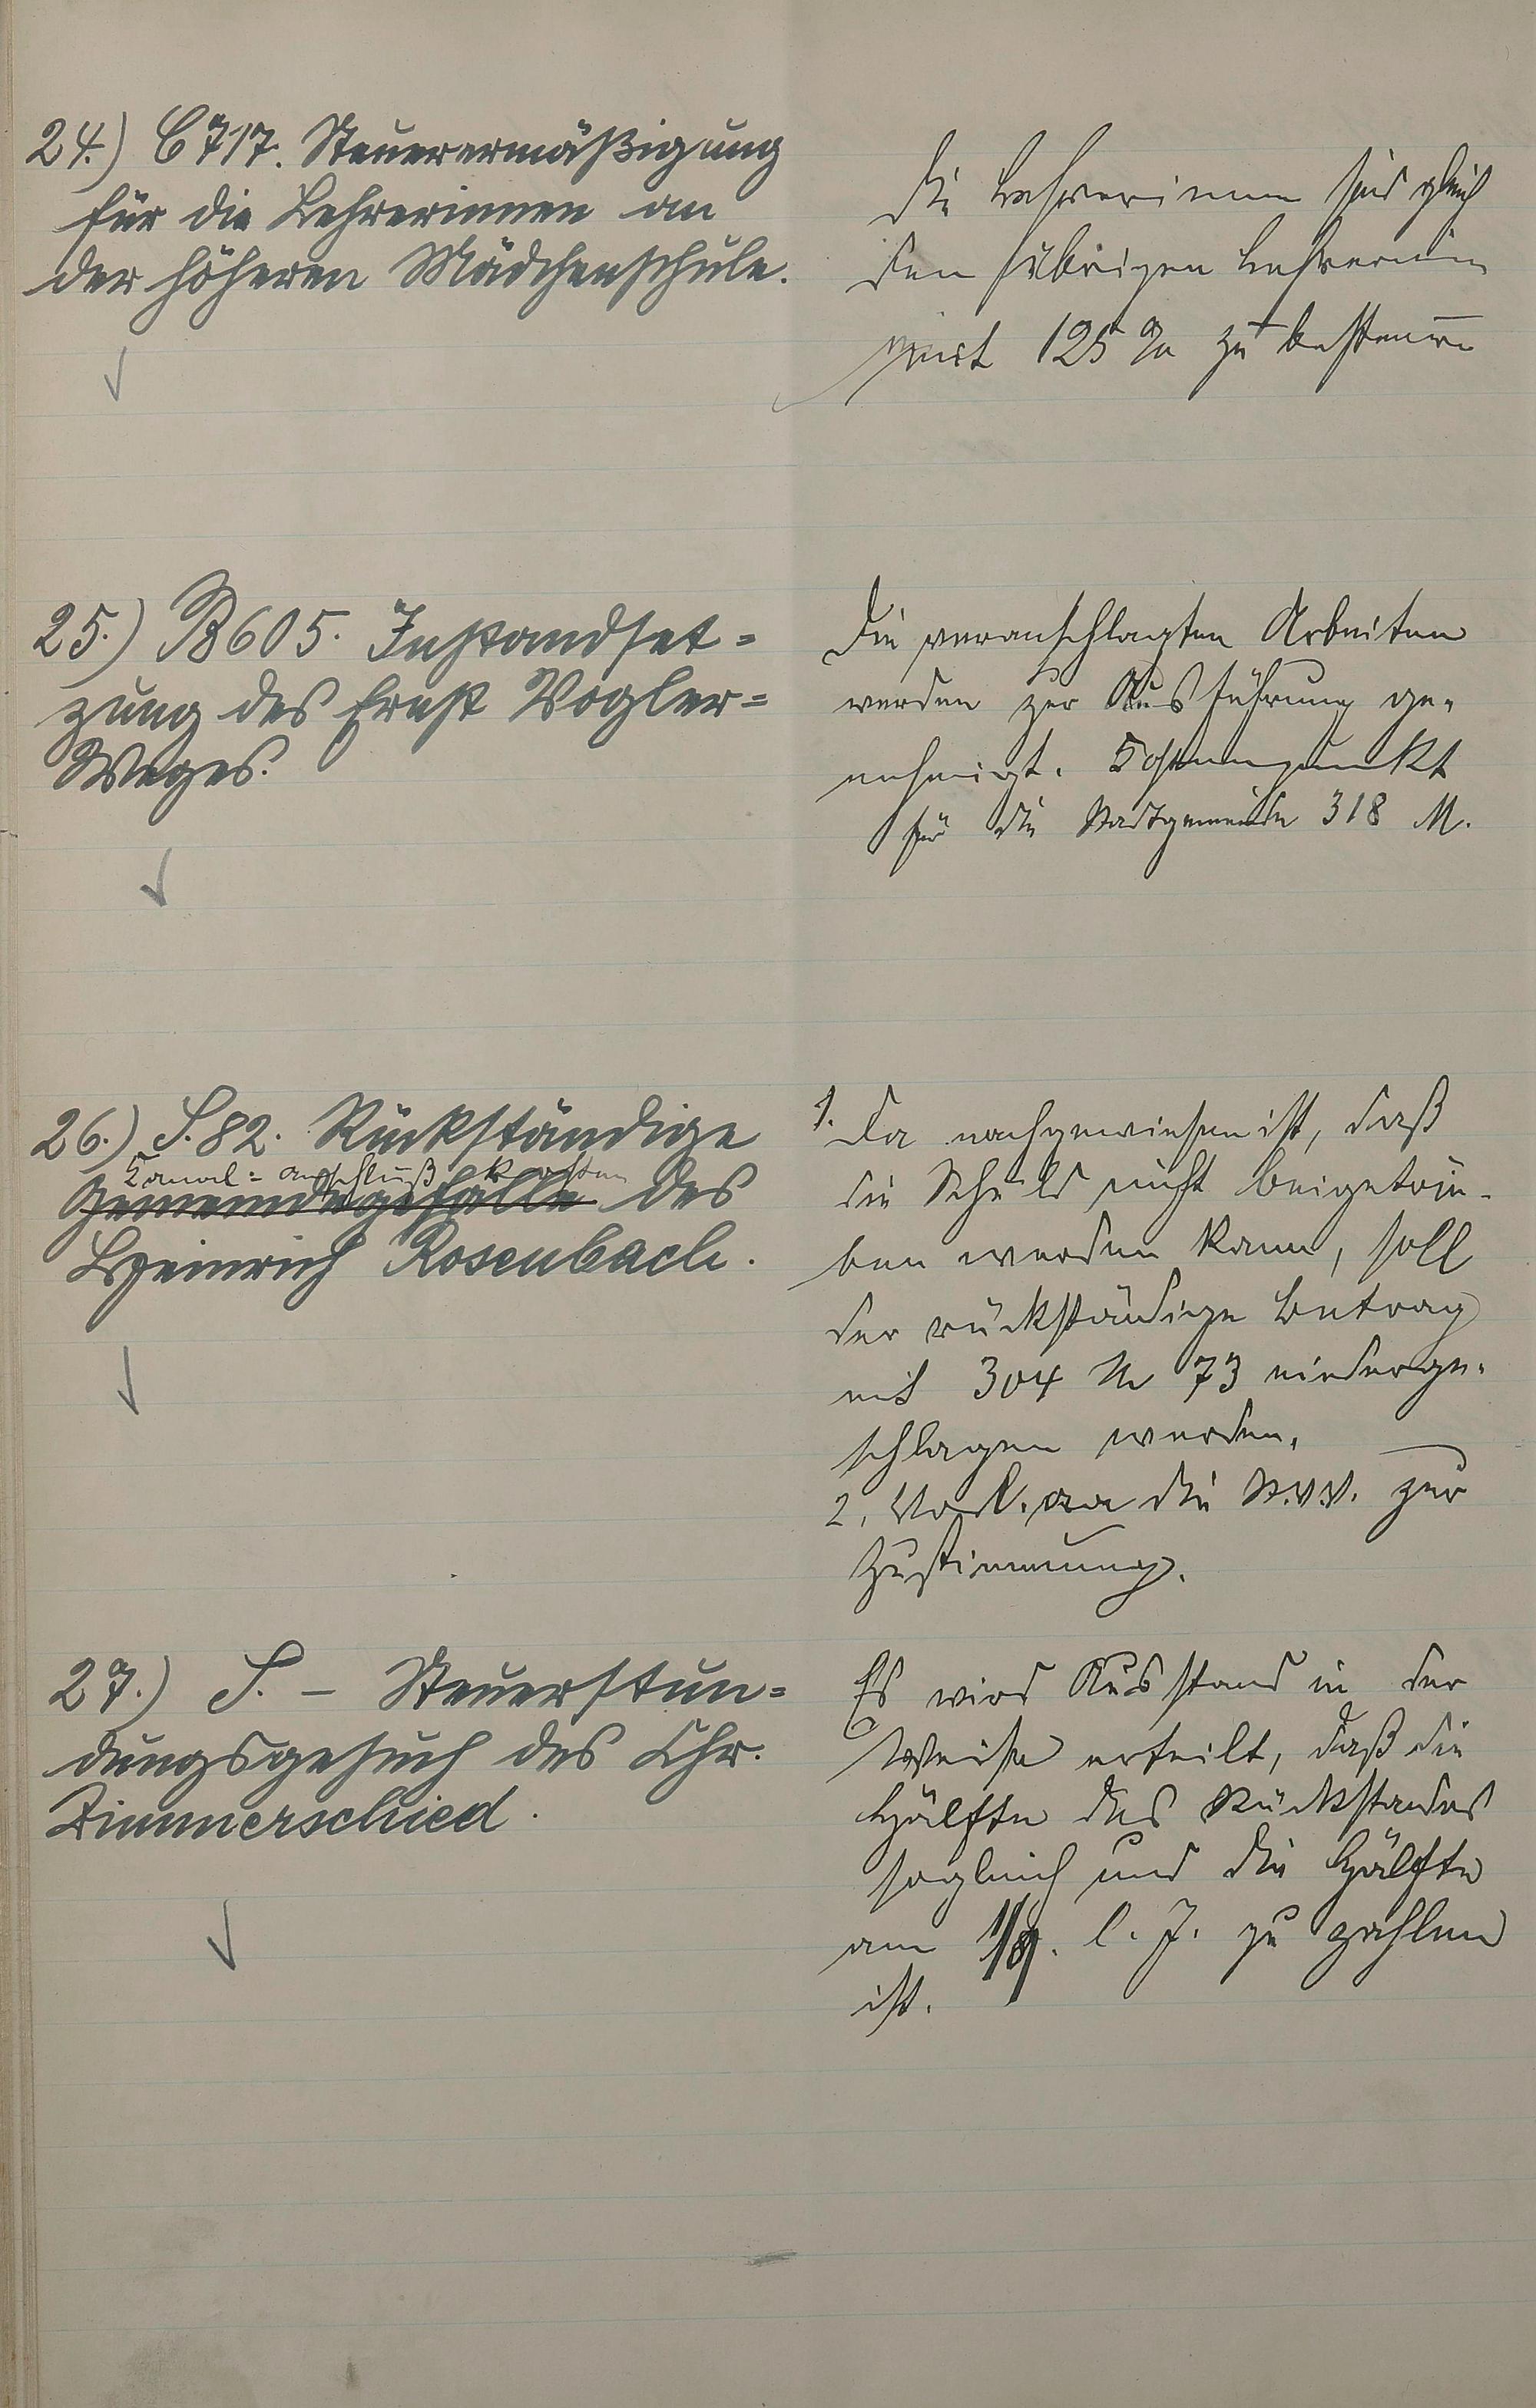 24.) C 717. Steuerermäßigung
für die Lehrerinnen an
der höheren Mädchenschule.
Die Lehrerinnen sind gleich
den übrigen Lehrerinnen
mit 125 % zu besteuern
25.) B 605. Instandset=
zung des Ernst Vogler=
Weges.
Die veranschlagten Arbeiten
werden zur Ausführung ge-
nehmigt.
für die Stadtgemeinde 318 M.
26.) S. 82. Rückständige
Kanal=anschluß kosten
Gemeindegefälle des
Heinrich Rosenbach.
1. Da nachgewiesen ist, daß
die Schuld nicht beigetrie-
ben werden kann, soll
der rückständige Betrag
mit 304 M 73 niederge-
schlagen werden.
2. Vorl. an die St.V.V. zur
Zustimmung.
27.) S. - Steuerstun=
dungsgesuch des Chr.
Zimmerschied.
Es wird Ausstand in der
Weise erteilt, daß die
Hälfte des Rückstandes
sogleich und die Hälfte
am l. J. zu zahlen
ist.